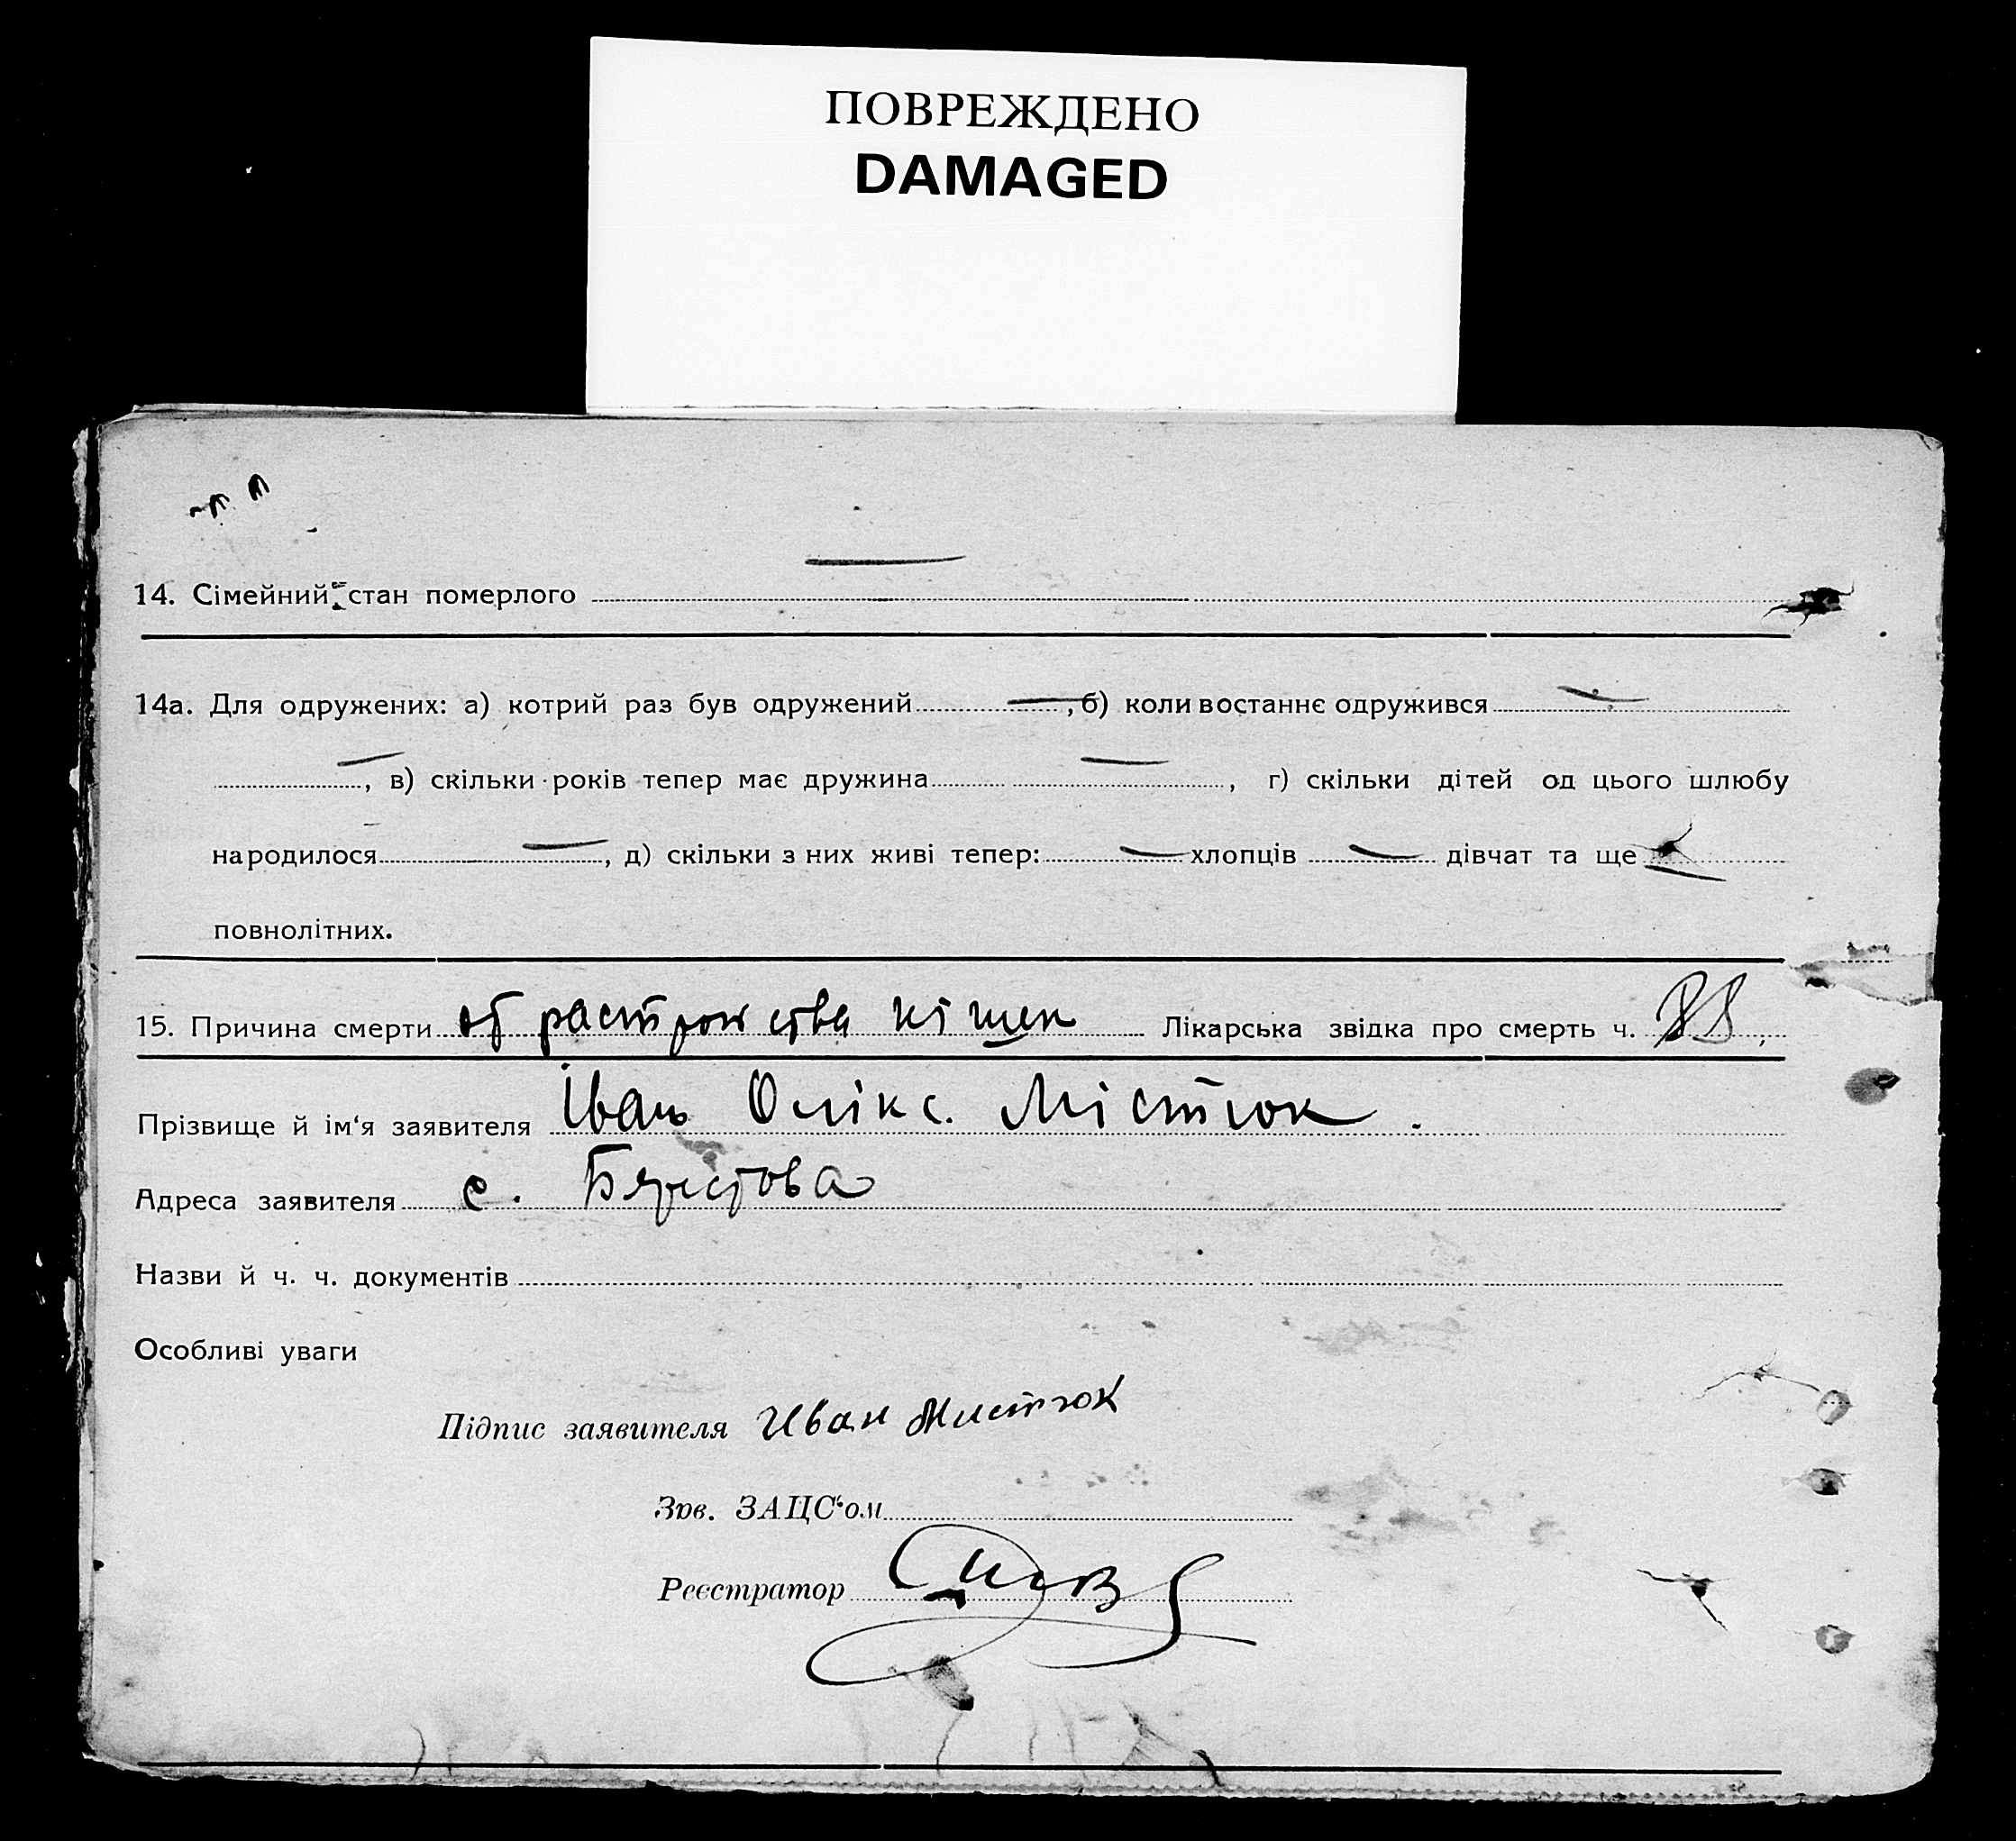 ПОВРЕЖДЕНО
DAMAGED
14. Сімейний стан померлого
14а. Для одружених: а) котрий раз був одружений —, б) коли востаннє одружився —
—, в) скільки років тепер має дружина —, г) скільки дітей од цього шлюбу
народилося —, д) скільки з них живі тепер: — хлопців — дівчат та ще —
повнолітних.
15. Причина смерти от растройства кішек Лікарська звідка про смерть ч.
Прізвище й ім'я заявителя Іван Олікс. Містюк.
Адреса заявителя с. Бярестова
Назви й ч. ч. документів
Особливі уваги
Підпис заявителя Иван Мистюк
Зав. ЗАЦС'ом
Реєстратор